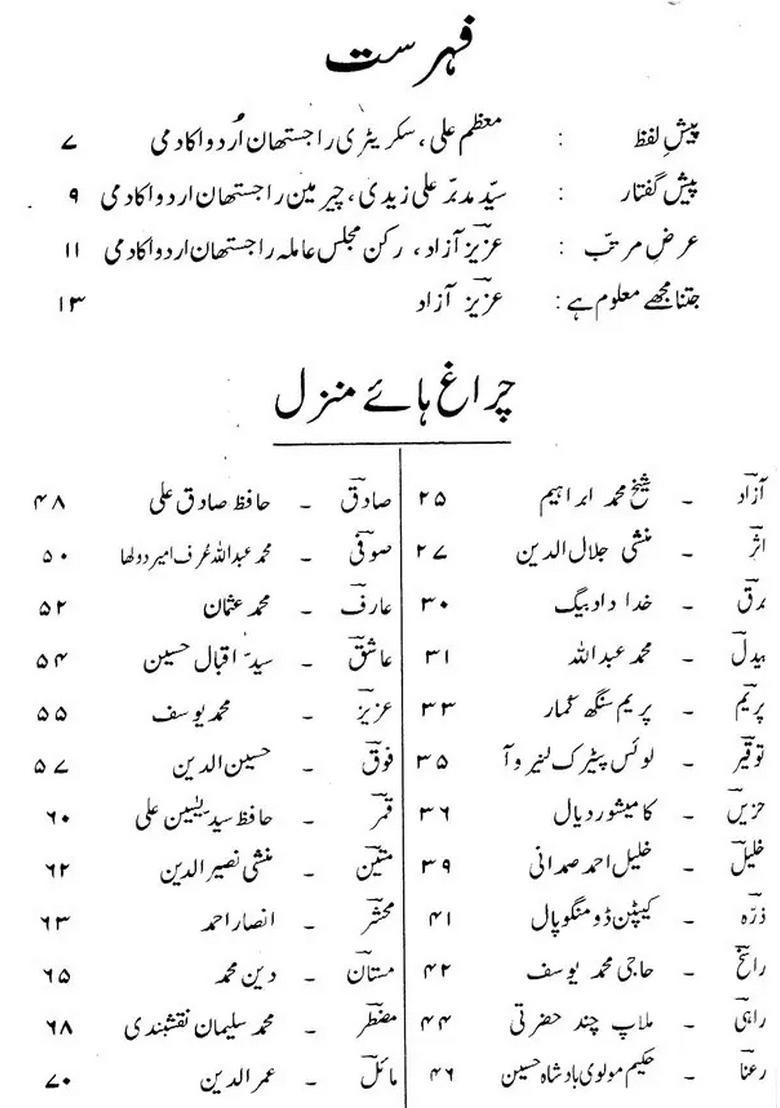 فہرست
پیش لفظ : معظم علی، سکریٹری راجستھان اُردو اکادمی ۷
پیش گفتار : سیّد مدبّر علی زیدی، چیرمین راجستھان اردو اکادمی ۹
عرضِ مرتّب : عزیز آزاد، رکن مجلس عاملہ راجستھان اردو اکادمی ۱۱
جتنا مجھے معلوم ہے : عزیز آزاد ۱۳
چراغ ہائے منزل
آزاد - شیخ محمد ابراہیم ۲۵
اثر - منشی جلال الدین ۲۷
برق - خدا داد بیگ ۳۰
بیدل - محمد عبداللہ ۳۱
پریم - پریم سنگھ کمار ۳۳
توقیر - لوئس پیٹرک لنیر وآ ۳۵
حزیں - کامیشور دیال ۳۶
خلیل - خلیل احمد صمدانی ۳۹
ذرّہ - کیپٹن ڈومنگوپال ۴۱
راسخ - حاجی محمد یوسف ۴۲
راہی - ملاپ چند حضرتی ۴۴
رعنا - حکیم مولوی بادشاہ حسین ۴۶
صادق - حافظ صادق علی ۴۸
صوفی - محمد عبداللہ عُرف امیر دولھا ۵۰
عارف - محمد عثمان ۵۲
عاشق - سیّد اقبال حسین ۵۴
عزیز - محمد یوسف ۵۵
فوق - حسین الدین ۵۷
قمر - حافظ سید یٰسین علی ۶۰
متین - منشی نصیر الدین ۶۲
محشر - انصار احمد ۶۳
مستان - دین محمد ۶۵
مضطر - محمد سلیمان نقشبندی ۶۸
مائل - عمر الدین ۷۰